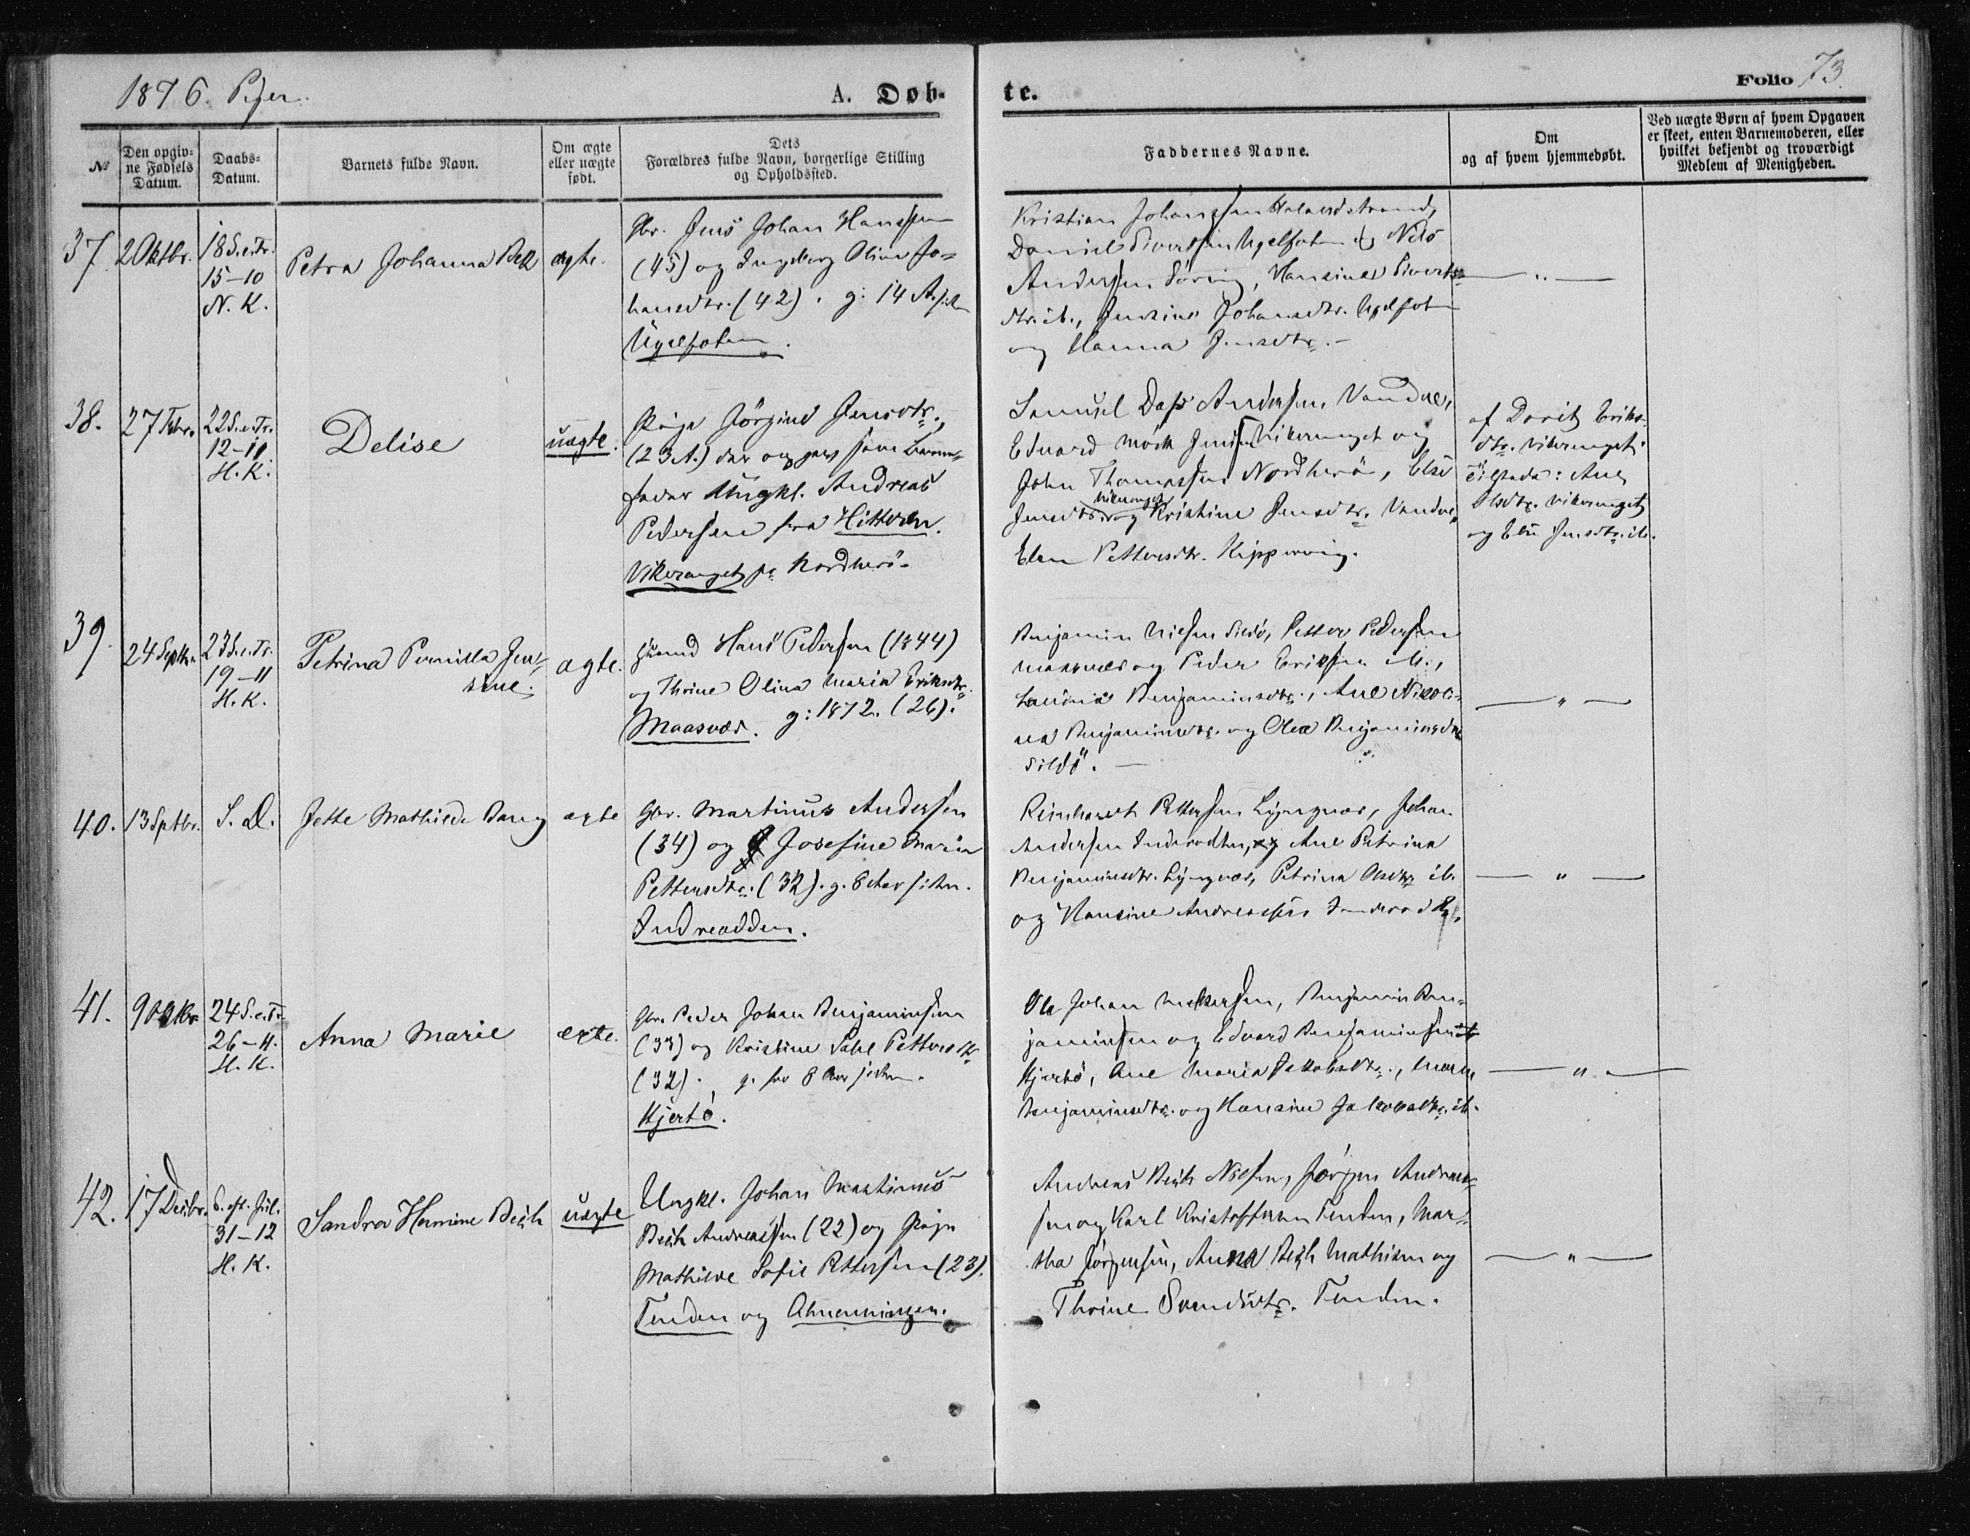 1876. Piger.
A. Døb-
te.
Folio 73.
№
Den opgiv-
ne Fødsels
Datum.
Daabs-
Datum.
Barnets fulde Navn.
Om ægte
eller uægte
født.
Dets
Forældres fulde Navn, borgerlige Stilling
og Opholdssted.
Faddernes Navne.
Om
og af hvem hjemmedøbt.
Ved uægte Børn af hvem Opgaven
er skeet, enten Barnemoderen, eller
hvilket bekjendt og troværdigt
Medlem af Menigheden.
37.
2 Oktbr.
18 S. e. Tr.
15-10
N. K.
Petra Johanna Bek
ægte.
Gbr. Jens Johan Hanssen
(45) og Ingeborg Olina Jo-
hansdtr. (42). g: 14 A. siden
Ugelfoten.
Kristian Johanssen
Daniel Sivertsen Ugelfoten og Nils
Andersen Søvig, Hansine Siverts-
dtr. ib., Jensine Johansdtr. Ugelfoten
og Hanna Jensdtr. -
— " —
38.
27 Febr.
22 S. e. Tr.
12-11
H. K.
Delise
uægte.
Pige Jørgine Jensdtr.,
(23 A.) der opgav som Barne-
fader Ungkl. Andreas
Pedersen fra Hitteren.
Vikeranget pr Nordherö.
Samuel Dass Andersen Vandve,
Edvard Mørk Jensen Vikeranget og
John Thomassen Nordherö, Else
Jensdtr. Vikeranget og Kristine Jensdtr. Vandve,
Elen Pettersdtr. Kippervig.
af Dorit Eriks-
dtr. Vikeranget.
Tilstede: Ane
Olsdtr. Vikeranget
og Else Jensdtr. ib.
39.
24 Septbr.
23 S. e. Tr.
19-11
H. K.
Petrina Pernilla Jen-
sine.
ægte.
Hans Pedersen (1844)
og Thrine Olina Maria Eriksdtr.
Maasvær. g: 1872. (26).
Benjamin Nielsen Sildö, Petter Pedersen
Maasvær og Peder Eriksen ib.,
Benjaminsdtr., Ane Nikoli-
na Benjaminsdtr. og Olea Benjaminsdtr.
Sildö. —
— " —
40.
13 Septbr.
S. D.
Jette Mathilde Bang
ægte
Gbr. Martinus Andersen
(34) og Josefine Maria
Pettersdtr. (32). g. 8 Aar siden.
Indreodden.
Reinhardt Pettersen Lyngvær, Johan
Andersen Indreodden, Ane Petrina
Benjaminsdtr. Lyngvær, Petrina Olsdtr. ib.
og Hansine Andreassen
— " —
41.
9 Oktbr.
24 S. e. Tr.
26-11.
H. K.
Anna Marie
ægte.
Gbr. Peder Johan Benjaminsen
(33) og Kristine Pettersdtr.
(32). g. for 8 Aar siden.
Hjertö.
Ole Johan Benjamin Ben-
jaminsen og Edvard Benjaminsen
Hjertö, Ane Maria Jakobsdtr., Maren
Benjaminsdtr. og Hansine Jakobsdtr. ib.
— " —
42.
17 Decbr.
S. eft. Jul.
31-12
H. K.
Sandra Hermine Bech
uægte
Ungkl. Johan Martinus
Bech Andreassen (22) og Pige
Mathilde Sofie Pettersen (23).
Tenden og
Andreas Bech Nilsen, Jørgen Andreas-
sen og Karl Kristoffersen Tenden, Mar-
tha Jørgensen, Anna Bech Mathisen og
Thrine Svendsdtr. Tenden.
— " —